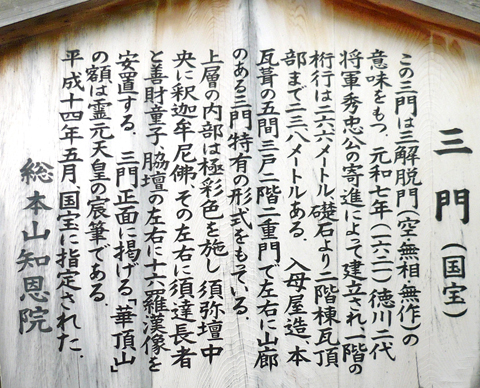 三門（国宝）
この三門は三解脱門（空・無相・無作）の
意味をもつ。元和七年（一六二一）徳川二代
将軍秀忠公の寄進によって建立され、一階の
桁行は二六・六メートル、礎石より二階棟瓦頂
部まで二三・八メートルある。入母屋造、本
瓦葺の五間三戸二階二重門で左右に山廊
のある三門特有の形式をもている。
上層の内部は極彩色を施し須弥壇中
央に釈迦牟尼佛、その左右に須達長者
と善財童子、脇壇の左右に十六羅漢像を
安置する。三門正面に掲げる「華頂山」
の額は霊元天皇の宸筆である。
平成十四年五月、国宝に指定された。
総本山知恩院